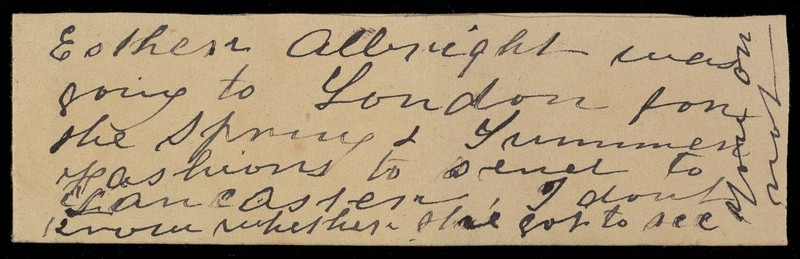 Esther Albright was
going to London for
the Spring & Summer
Fashions to send to
Lancaster, I dont
know whether she got to see
you or
not